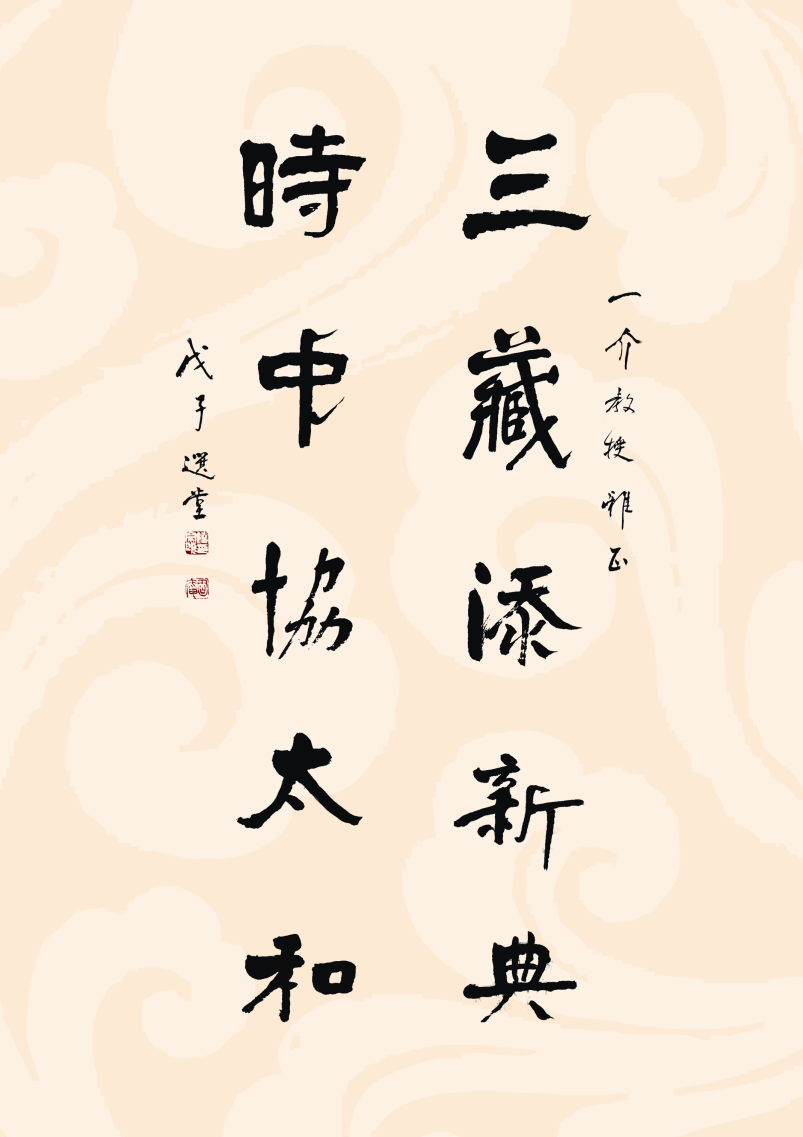 一介教授雅正
三藏添新典
時中協太和
戊子選堂